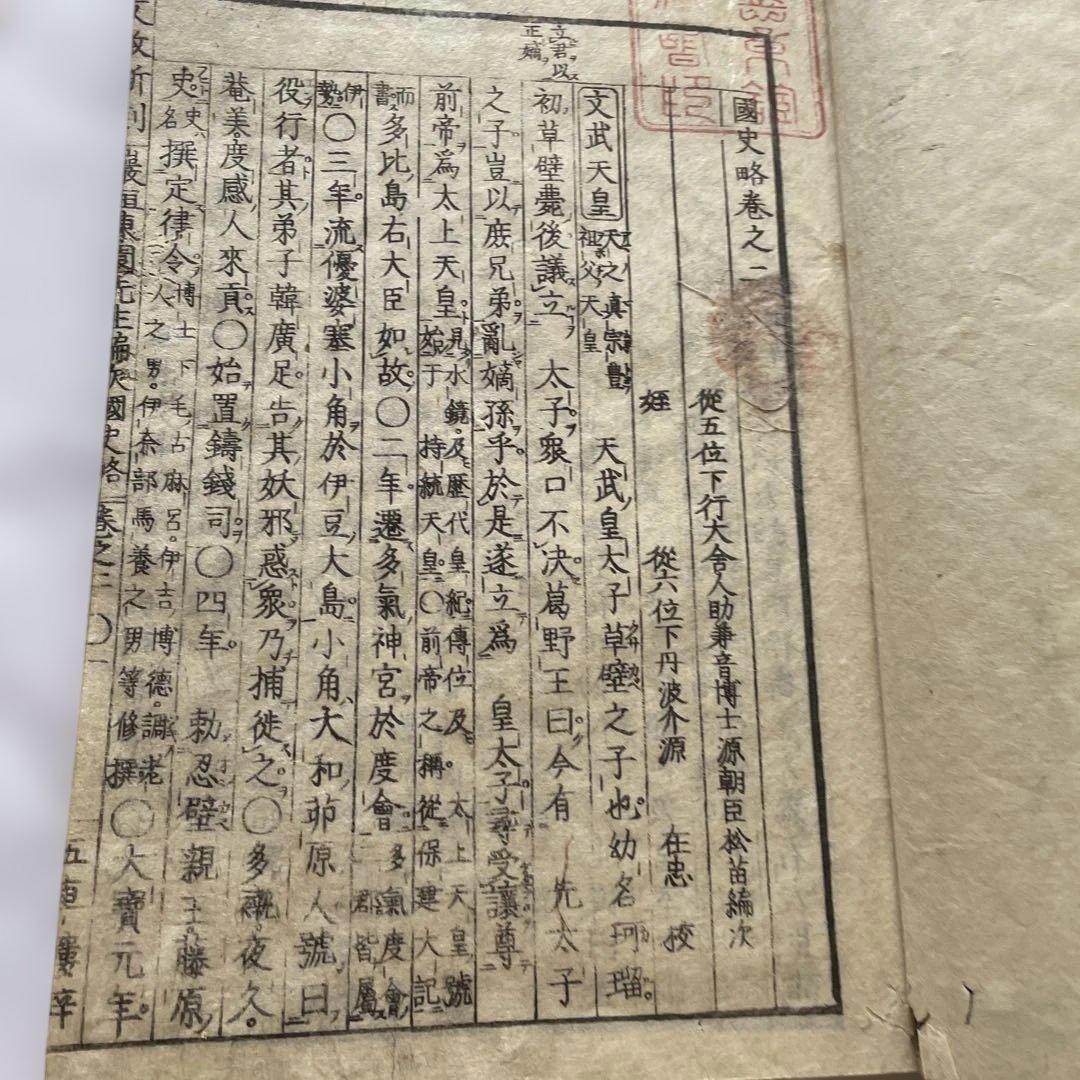 國史略卷之二
從五位下行大舎人助兼音博士源朝臣松苗編次
姪 從六位下丹波介源 在忠 挍
立君以
正嫡
文武天皇 天之真宗豐
祖父天皇
天武皇太子草壁之子也幼名珂瑠
初草壁薨後議立 太子衆口不決葛野王曰今有 先太子
之子豈以庶兄弟亂嫡孫乎於是遂立爲 皇太子尋受讓尊
前帝爲太上天皇 見水鏡及歷代皇紀傳位及 太上天皇號
始于 持統天皇〇前帝之稱從保建大記
而書
多比島右大臣如故〇二年遷多氣神宮於度會 多氣度會
君皆屬
伊勢
〇三年流優婆塞小角於伊豆大島小角大和茆原人號曰
役行者其弟子韓廣足告其妖邪惑衆乃捕徙之〇多褹夜久
菴美度感人來貢〇始置鑄錢司〇四年 勅忍壁親王藤原
史 史名
撰定律令 博士下毛占麻呂伊吉博德調老
人之男伊奈部馬養之男等修撰
〇大寶元年
國史略 卷之二 〇一 五車樓梓